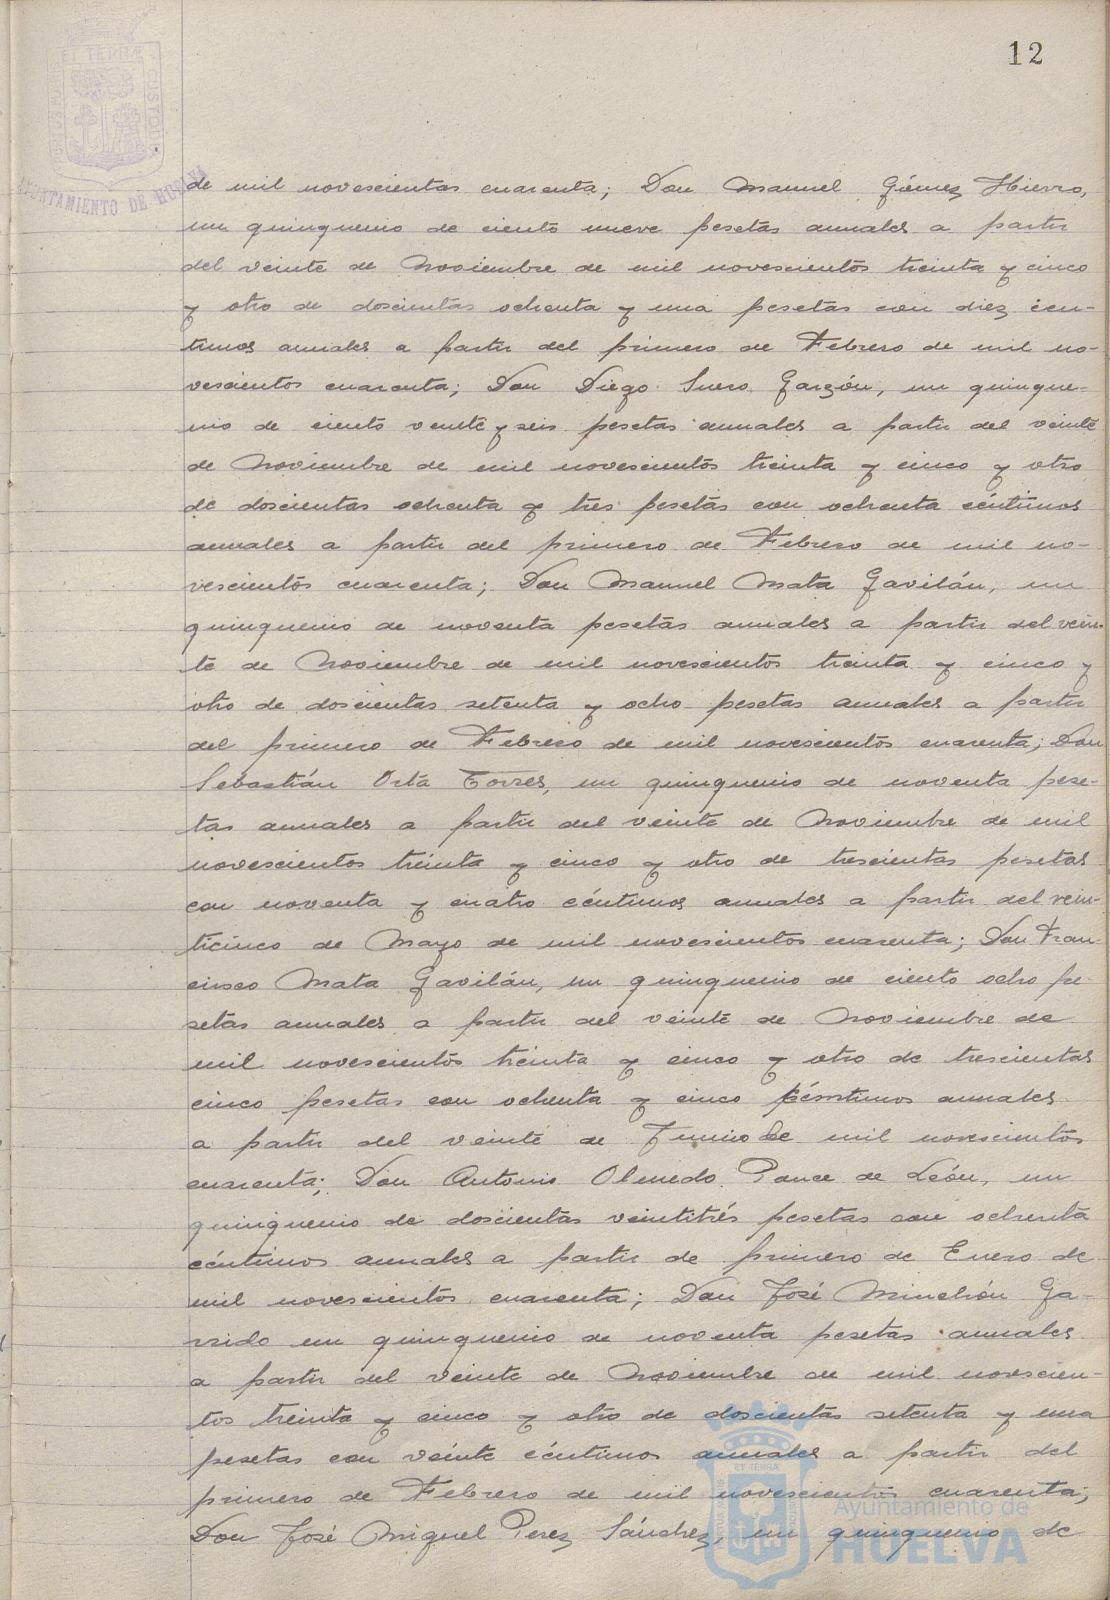 12
ET TERRÆ CUSTODIA
AYUNTAMIENTO DE HUELVA
de mil novescientas cuarenta; Don Manuel Gómez Hierro,
un quinquenio de ciento nueve pesetas anuales a partir
del veinte de Noviembre de mil novescientos treinta y cinco
y otro de doscientas ochenta y una pesetas con diez cen-
timos anuales a partir del primero de Febrero de mil no-
vescientos cuarenta; Don Diego Suero Garzón, un quinque-
nio de ciento veinte y seis pesetas anuales a partir del veinte
de Noviembre de mil novescientos treinta y cinco y otro
de doscientas ochenta y tres pesetas con ochenta céntimos
anuales a partir del primero de Febrero de mil no-
vescientos cuarenta; Don Manuel Mata Gavilán, un
quinquenio de noventa pesetas anuales a partir del vein-
te de Noviembre de mil novescientos treinta y cinco y
otro de doscientas setenta y ocho pesetas anuales a partir
del primero de Febrero de mil novescientos cuarenta; Don
Sebastián Orta Torres, un quinquenio de noventa pese-
tas anuales a partir del veinte de Noviembre de mil
novescientos treinta y cinco y otro de trescientas pesetas
con noventa y cuatro céntimos anuales a partir del vein-
ticinco de Mayo de mil novescientos cuarenta; Don Fran-
cisco Mata Gavilán, un quinquenio de ciento ocho pe-
setas anuales a partir del veinte de Noviembre de
mil novescientos treinta y cinco y otro de trescientas
cinco pesetas con ochenta y cinco céntimos anuales
a partir del veinte de Junio de mil novescientos
cuarenta; Don Antonio Olmedo Ponce de León, un
quinquenio de doscientas veintitrés pesetas con ochenta
céntimos anuales a partir de primero de Enero de
mil novescientos cuarenta; Don José Minchón Ga-
rrido un quinquenio de noventa pesetas anuales
a partir del veinte de Noviembre de mil novescien-
tos treinta y cinco y otro de doscientas setenta y una
pesetas con veinte céntimos anuales a partir del
primero de Febrero de mil novescientos cuarenta;
Don José Miguel Perez Sánchez, un quinquenio de
Ayuntamiento de
HUELVA